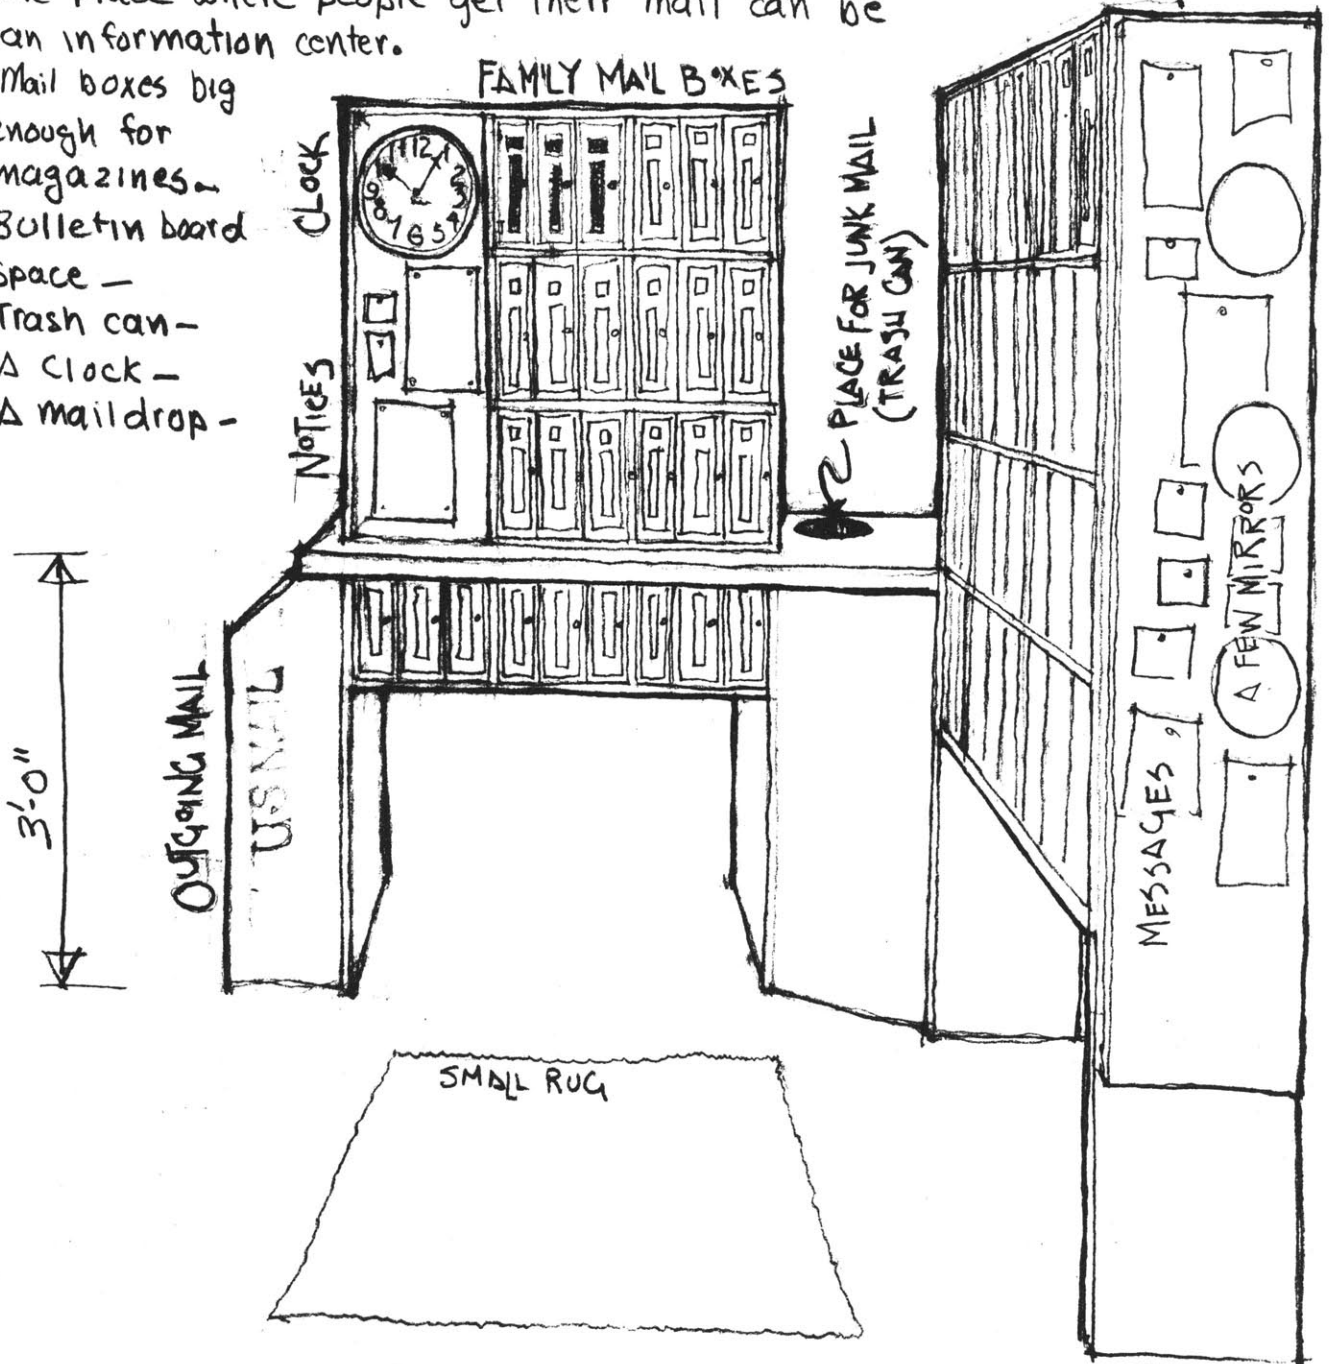 Place where people get their mail can be
an information center.
Mail boxes big
enough for
magazines-
Bulletin board
space -
Trash can-
A Clock -
A maildrop -
FAMILY MAIL BOXES
CLOCK
12 1 2 3 4 5 6 7 8 9 10 11
NOTICES
PLACE FOR JUNK MAIL
(TRASH CAN)
A FEW MIRRORS
MESSAGES
OUTGOING MAIL
US MAIL
3'-0"
SMALL RUG